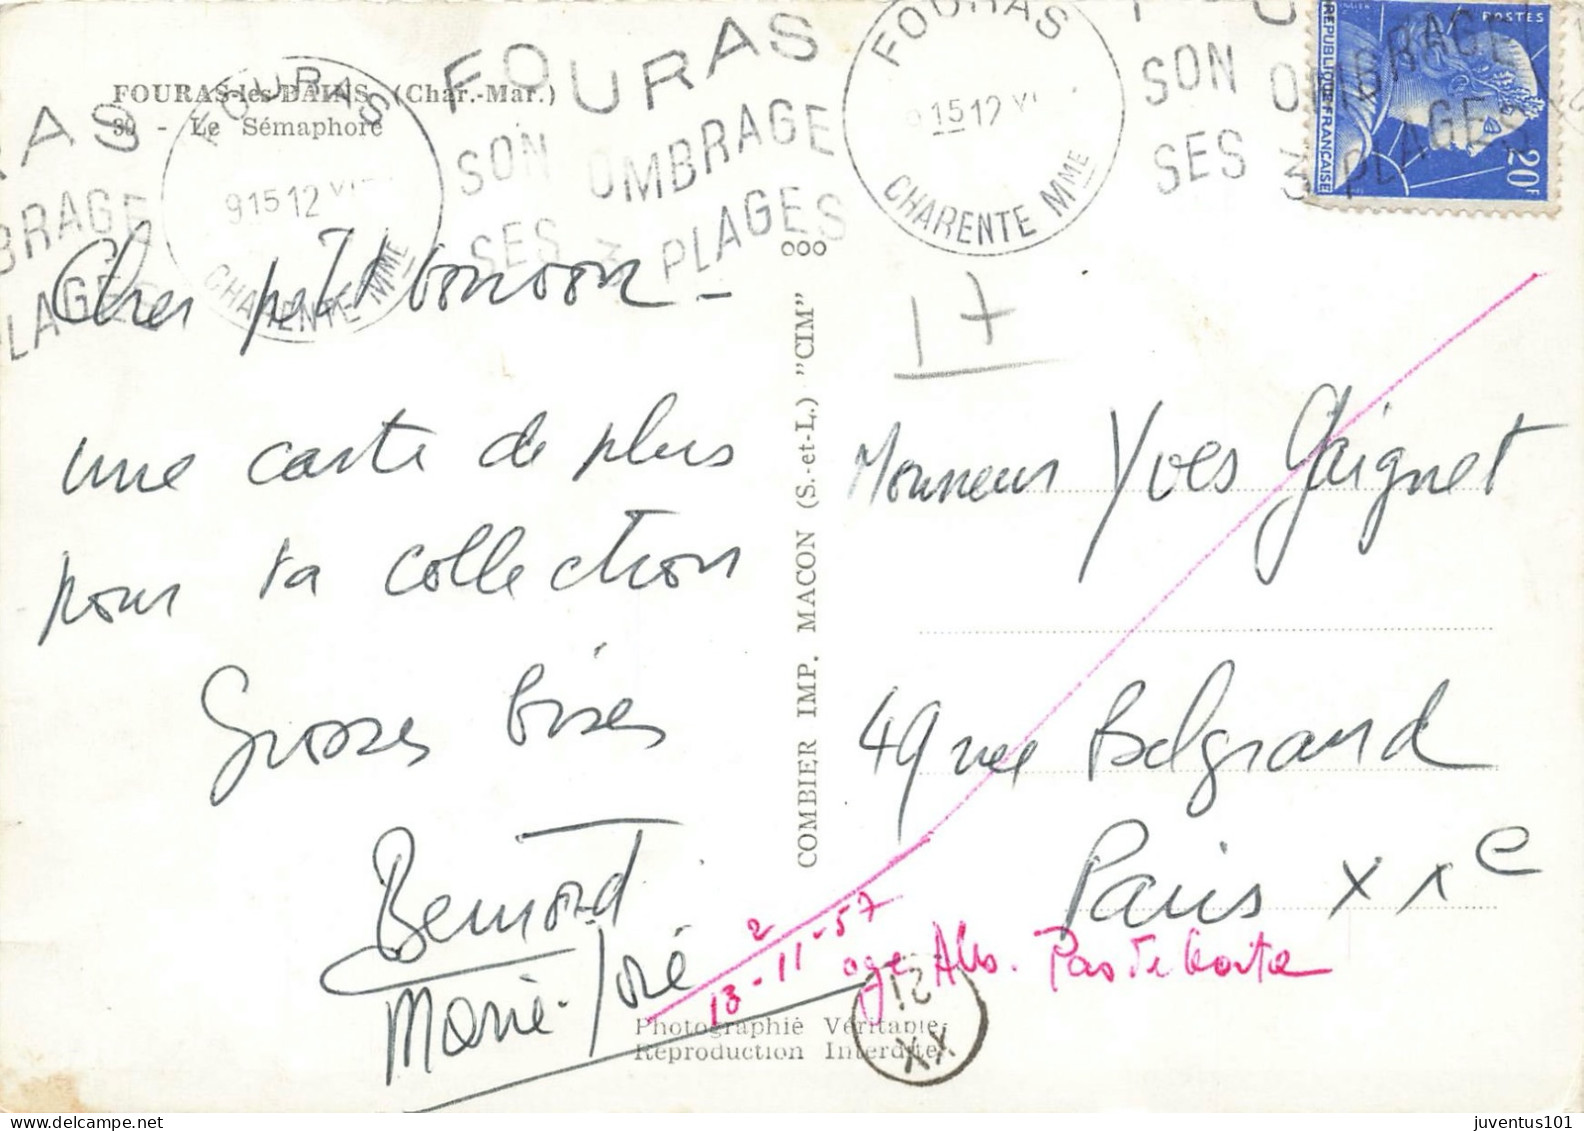 FOURAS-les-BAINS (Char.-Mar.)
39 - Le Sémaphore
FOURAS
9 15 12
CHARENTE MME
FOURAS
SON OMBRAGE
SES 3 PLAGES
FOURAS
9 15 12
CHARENTE MME
SON OMBRAGE
SES 3 PLAGES
POSTES
REPUBLIQUE FRANÇAISE
20F
17
Cher petit bonbon -
une carte de plus
pour ta collection
Grosses bises
Bernard
Marie-José
COMBIER IMP. MACON (S.-et-L.) "CIM"
Monsieur Yves Gaignet
49 rue Belgrand
Paris XXe
13-11-57
2
Pas de boite
XX
21
Photographie Véritable
Reproduction Interdite
juventus101